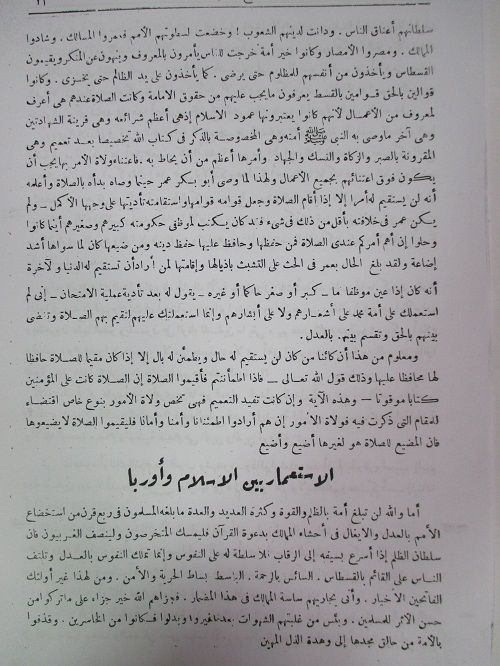 سلطانهم أعناق الناس . ودانت لدينهم الشعوب ! وخضعت لسطوتهم الأمم فدمروا المسالك . وشادوا
الممالك . ومصروا الأمصار وكانوا خير أمة خرجت للناس يأمرون بالمعروف وينهون عن المنكر ويقيمون
القسطاس ويأخذون من أنفسهم للمظلوم حتى يرضى . كما يأخذون على يد الظالم حتى يخزى . وكانوا
قوالين بالحق قوامين بالقسط يعرفون ما يجب عليهم من حقوق الامامة وكانت الصلاة عندهم هي أعرف
المعروف من الأعمال لأنهم كانوا يعتبرونها عمود الاسلام إذ هي أعظم شرائعه وهي قرينة الشهادتين
وهي آخر ما وصى به النبي ﷺ أمته وهي المخصوصة بالذكر في كتاب الله تخصيصا بعد تعميم وهي
المقرونة بالصبر والزكاة والنسك والجهاد وأمرها أعظم من أن يحاط به . فاعتناء ولاة الأمر بها يجب أن
يكون فوق اعتنائهم بجميع الأعمال ولهذا لما وصى أبو بكر عمر حينما وصاه بدأه بالصلاة وأعلمه
أنه لن يستقيم له أمر إلا إذا أقام الصلاة وجعل قوامه قوامها واستقامته تأديتها على وجهها الأكمل . ولم
يكن عمر في خلافته بأقل من ذلك في شيء فقد كان يكتب لموظفي حكومته كبيرهم وصغيرهم أينما كانوا
وحلوا إن أهم أمركم عندي الصلاة فمن حفظها وحافظ عليها حفظ دينه ومن ضيعها كان لما سواها أشد
إضاعة ولقد بلغ الحال بعمر في الحث على التشبث باذيالها وإقامتها لمن أراد أن تستقيم له الدنيا والآخرة
أنه كان إذا عين موظفا ما – كبر أو صغر حاكما أو غيره – يقول له بعد تأدية عملية الامتحان – إنى لم
استعملك على أمة محمد على أشعارهم ولا على أبشارهم وإنما استعملتك عليهم لتقيم بهم الصلاة وتقضى
بينهم بالحق وتقسم بينهم بالعدل .
ومعلوم من هذا أن كائنا من كان لن يستقيم له حال ويطمئن له بال إلا إذا كان مقيما للصلاة حافظا
لها محافظا عليها وذلك قول الله تعالى – فاذا اطمأننتم فأقيموا الصلاة إن الصلاة كانت على المؤمنين
كتابا موقوتا – وهذه الآية وإن كانت تفيد التعميم فهي تخص ولاة الأمور بنوع خاص اقتضاء
للمقام التي ذكرت فيه فولاة الأمور إن هم أرادوا اطمئنانا وأمنا وأمانا فليقيموا الصلاة لا يضيعوها
فان المضيع للصلاة هو لغيرها أضيع وأضيع
الاستعمار بين الاسلام وأوربا
أما والله لن تبلغ أمة بالظلم والقوة وكثرة العديد والعدة ما بلغه المسلمون في ربع قرن من استخضاع
الأمم بالعدل والايغال في أحشاء الممالك بدعوة القرآن فليمسك المتخرصون ولينصف الغربيون فان
سلطان الظلم إذا أسرع بسيفه إلى الرقاب فلا سلطة له على النفوس وإنما تملك النفوس بالعدل وتلتف
الناس على القائم بالقسطاس . السائس بالرحمة . الباسط بساط الحرية والأمن . ومن لهذا غير أولئك
الفاتحين الأخيار . وأنى يجاريهم ساسة الممالك في هذا المضمار . فجزاهم الله خير جزاء على ما تركوا من
حسن الأثر للمسلمين . وبئس من غلبتهم الشهوات بعد فغيروا وبدلوا فكانوا من الخاسرين . وقذفوا
بالأمة من حالق مجدها إلى وهدة الذل المهين